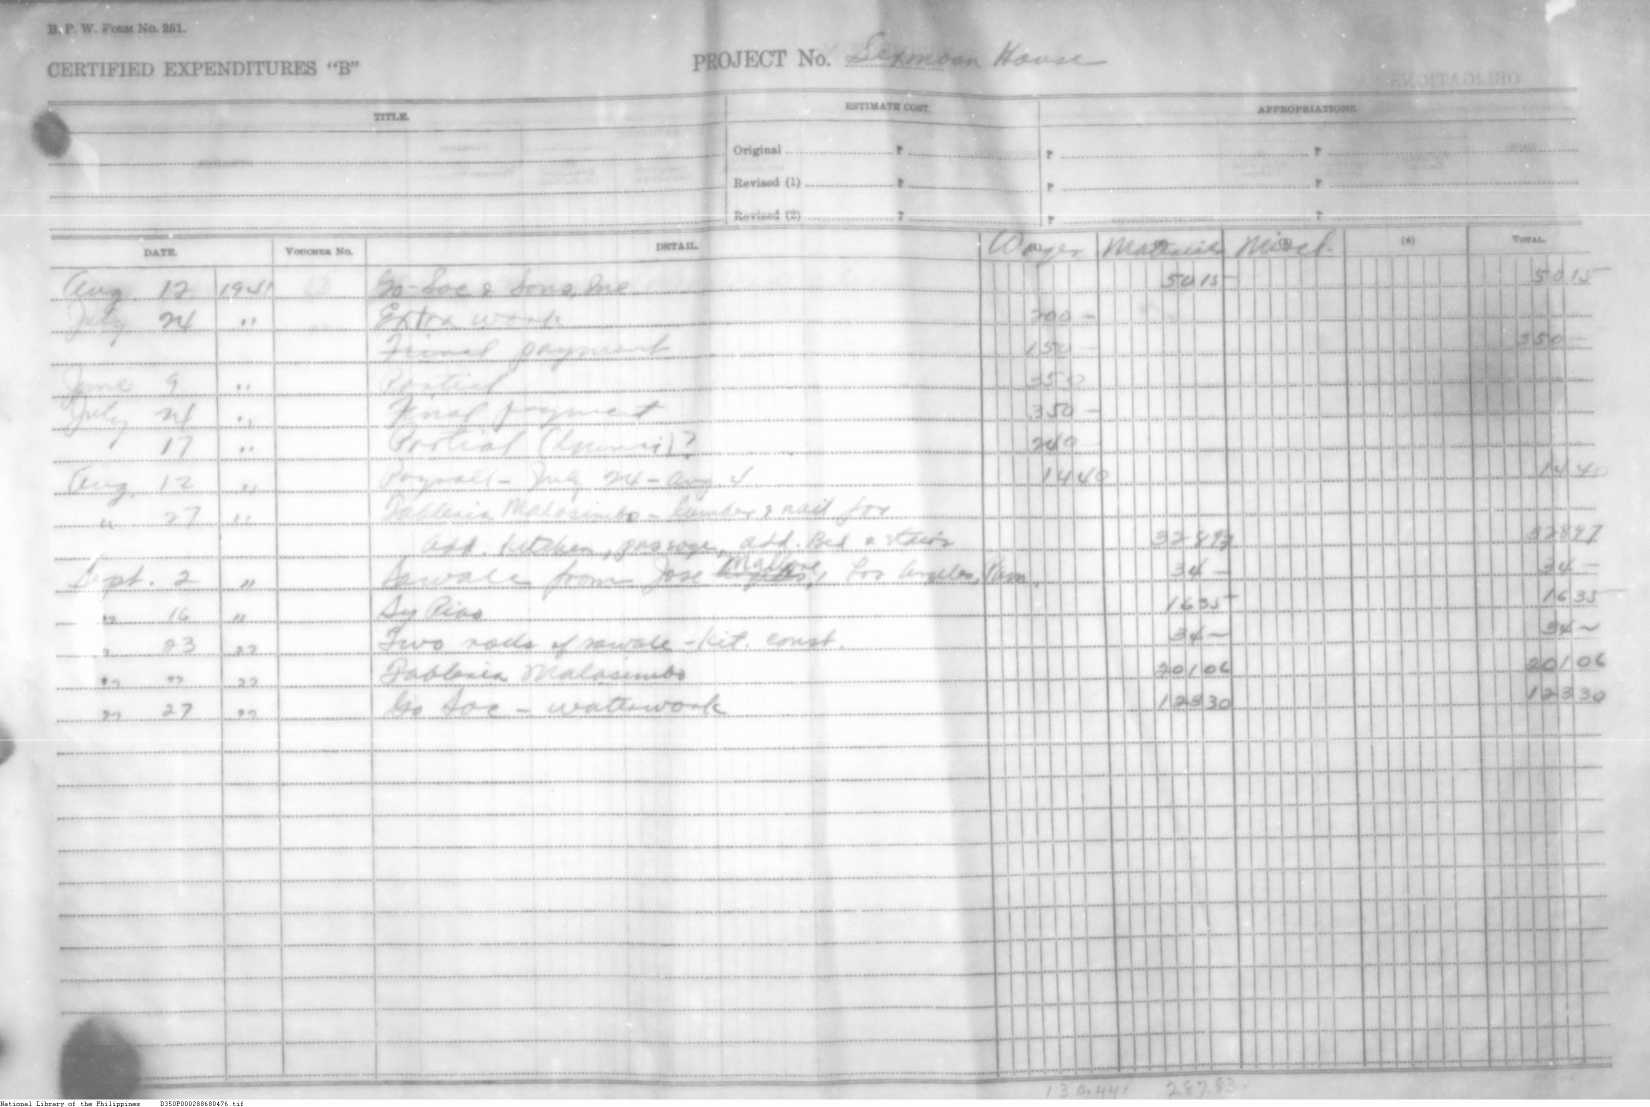 B. P. W. Form No. 251.
CERTIFIED EXPENDITURES "B"
PROJECT No. Sexmoan House
TITLE.
ESTIMATE COST.
APPROPRIATIONS.
Original ₱ ₱ ₱
Revised (1) ₱ ₱ ₱
Revised (2) ₱ ₱ ₱
DATE. VOUCHER No. DETAIL. Wages Materials Miscl. (4) TOTAL.
Aug. 12 1941 Go-Soc & Sons, Inc 5015 5015
July 24 " Extra work 200 -
Final payment 150 - 350 -
June 9 " Partial 350
July 24 " Final payment 350 -
17 " Partial ? 240 -
Aug. 12 " Payroll - July 24 - Aug. 4 1440 1440
" 27 " Tableria Malasimbo - lumber & nail for
add. kitchen, passage, add. Bed & stairs 32897 32897
Sept. 2 " Sawale from Jose Mallare, Los Angeles, Pam. 34 - 34 -
" 16 " Sy Pias 1635 1635
" 23 " Two rolls of sawale - kit. const. 34 - 34 -
" " " Tableria Malasimbo 20106 20106
" 27 " Go Soc - waterwork 12330 12330
287.83
National Library of the Philippines D350P000288680476.tif